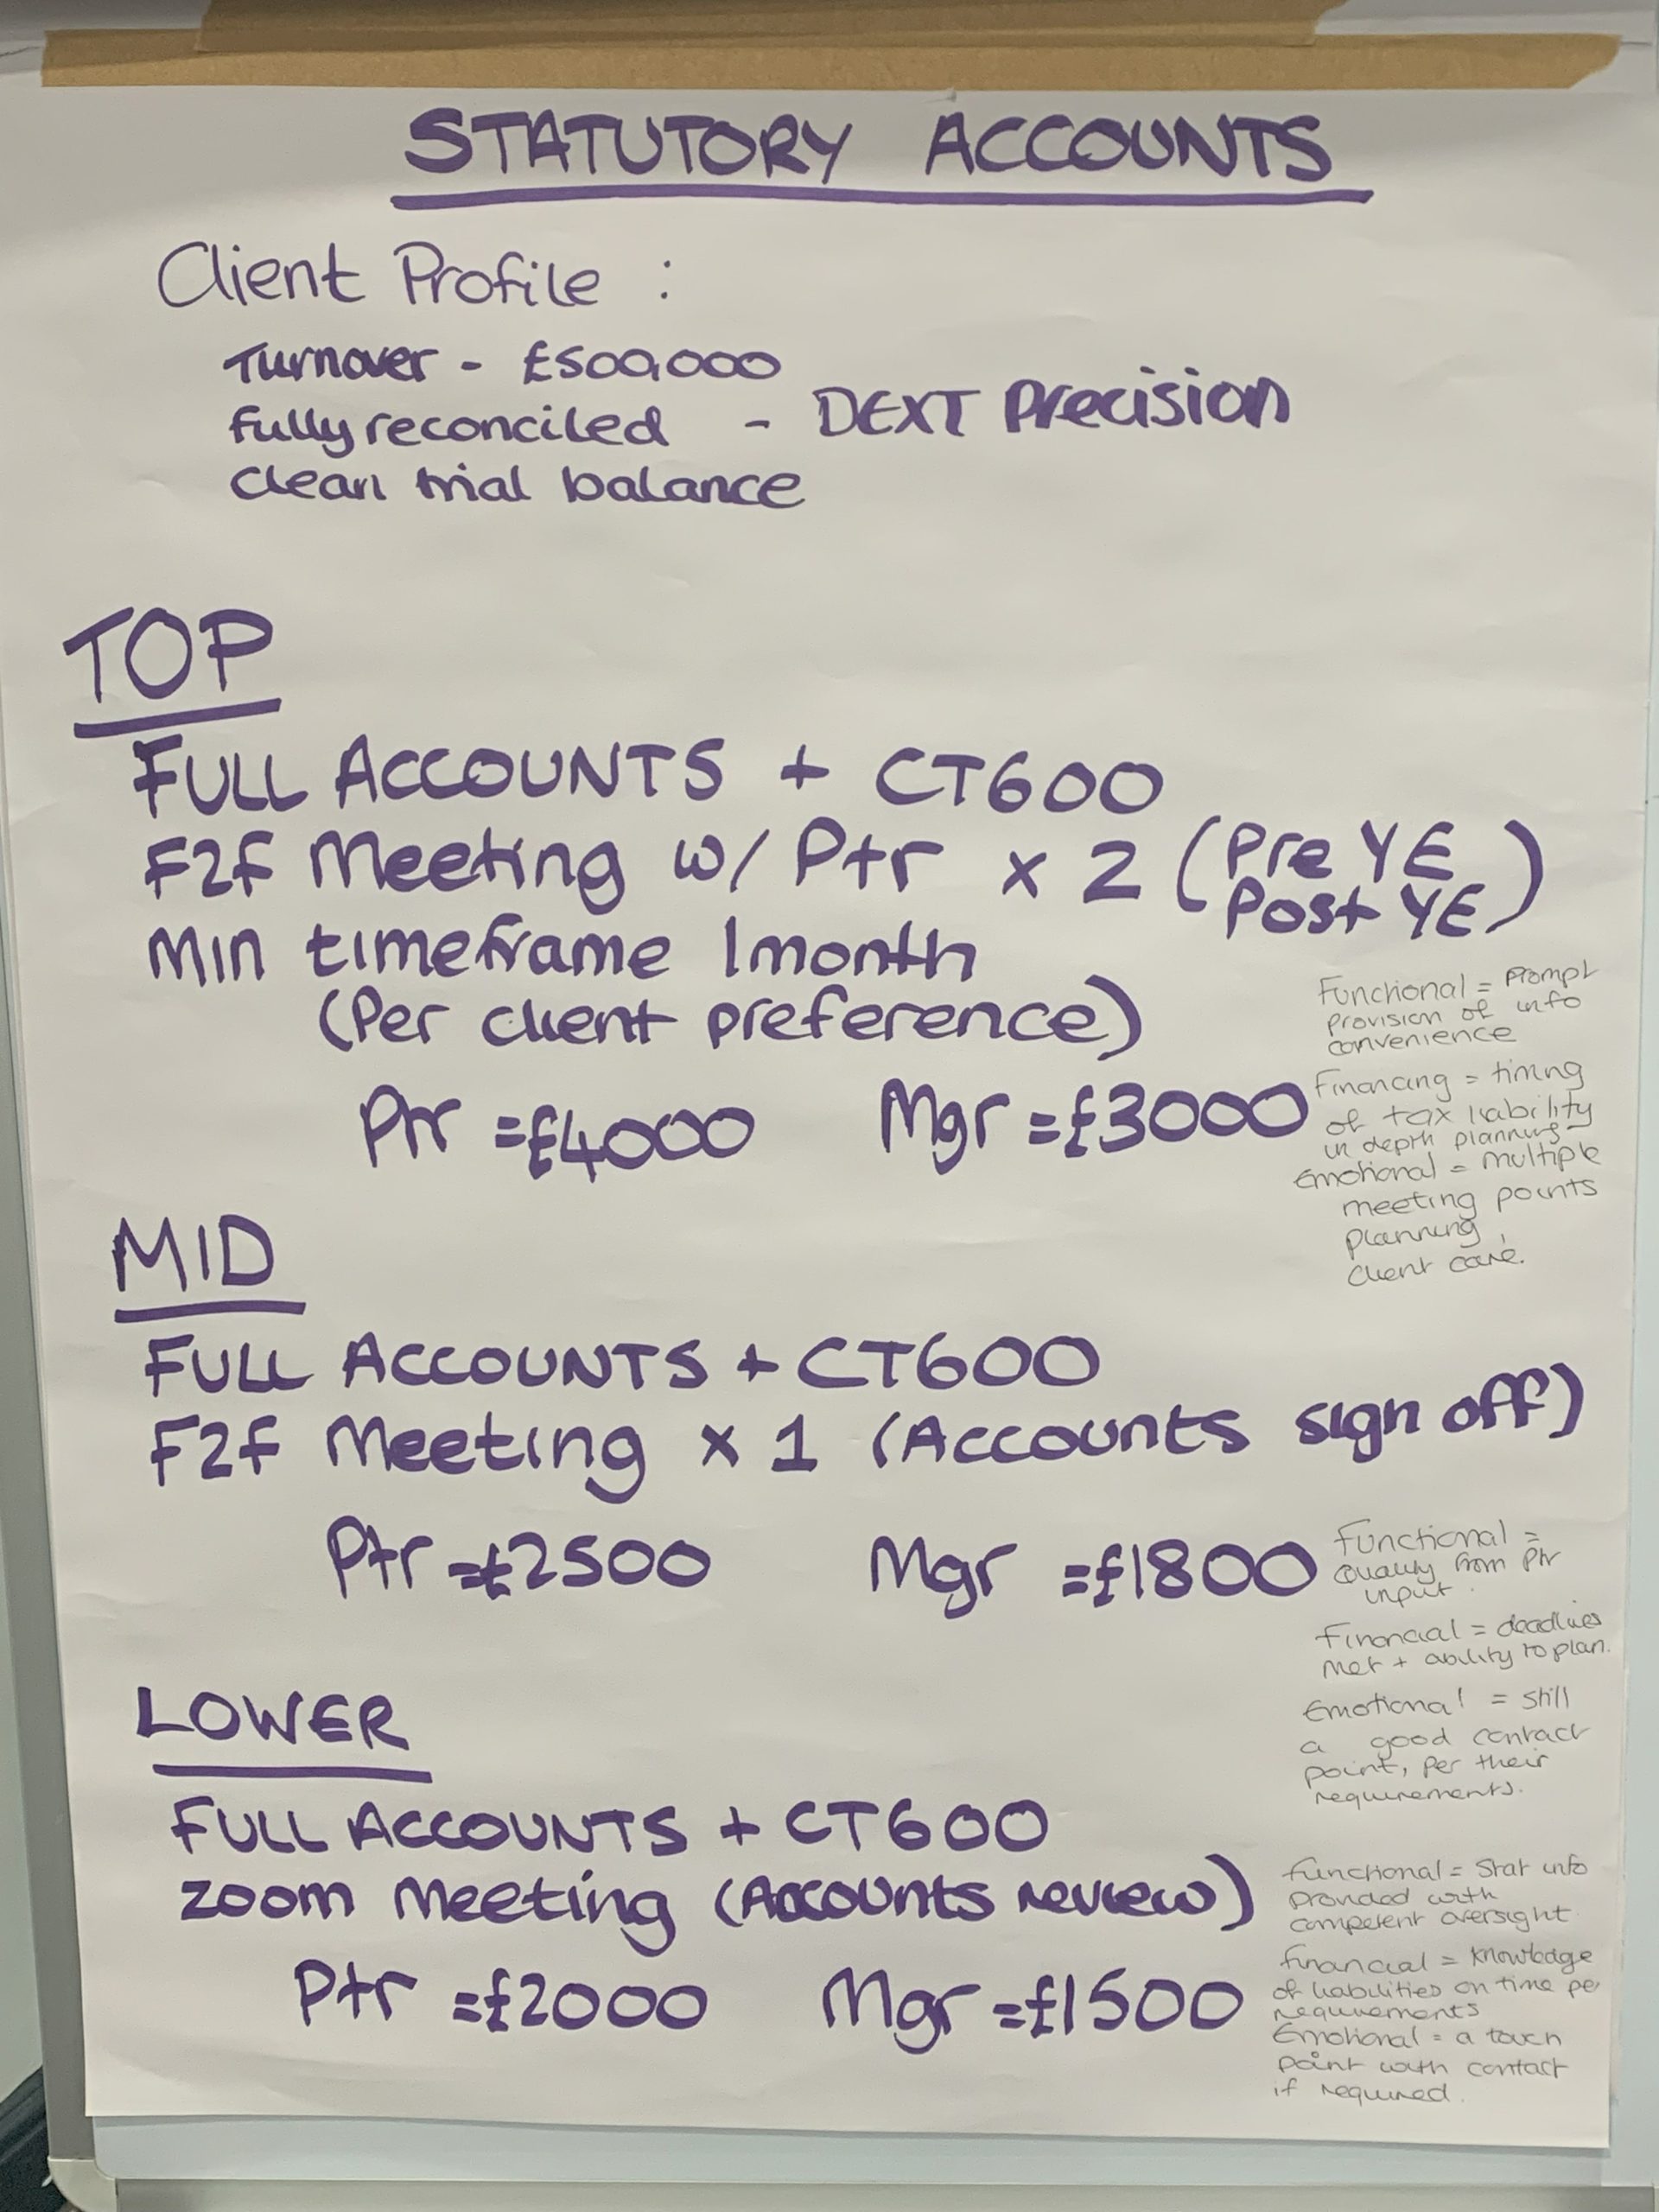 STATUTORY ACCOUNTS
Client Profile :
Turnover - £500,000
fully reconciled - DEXT Precision
clean trial balance
TOP
FULL ACCOUNTS + CT600
F2F Meeting w/ Ptr x 2 (Pre YE
Post YE)
Min timeframe 1month
(Per client preference)
Ptr =£4000 Mgr =£3000
Functional = Prompt
provision of info
convenience
Financing = timing
of tax liability
in depth planning
Emotional = multiple
meeting points
planning
client care.
MID
FULL ACCOUNTS + CT600
F2F Meeting x 1 (Accounts sign off)
Ptr =£2500 Mgr =£1800
Functional =
Quality from Ptr
input.
Financial = deadlines
met + ability to plan.
Emotional = still
a good contact
point, per their
requirements.
LOWER
FULL ACCOUNTS + CT600
Zoom Meeting (Accounts review)
Ptr =£2000 Mgr =£1500
Functional = Stat info
provided with
competent oversight.
Financial = knowledge
of liabilities on time per
requirements
Emotional = a touch
point with contact
if required.